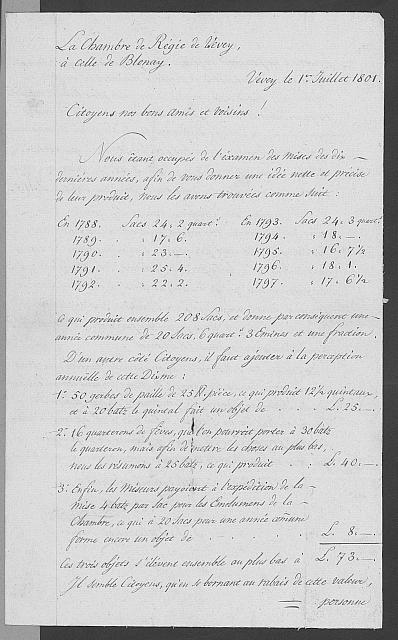 La Chambre de Régie de Vévey,
à celle de Blonay.
Vévey le 1.er Juillet 1801.
Citoyens nos bons amis et voisins !
Nous étant occupés de l'éxamen des mises des dix
dernières années, afin de vous donner une idée nette et précise
de leur produit, nous les avons trouvées comme suit :
En 1788. Sacs 24 „ 2 quart.s En 1793. Sacs 24 „ 3 quart.s
1789 . . „ 17 „ 6. 1794. „ 18 „ —
1790 . . „ 23 „ —. 1795. „ 16 „ 7½
1791 . . „ 25 „ 4. 1796. „ 18 „ 1.
1792 . . „ 22 „ 2. 1797. „ 17 „ 6½
ce qui produit ensemble 208 Sacs, et donne par conséquent une
année commune de 20 Sacs, 6 quart.s 3 Emines et une fraction.
D'un autre côté Citoyens, il faut ajouter à la perception
annuelle de cette Dixme :
1.° 50 gerbes de paille de 25 ℔. pièce, ce qui produit 12½ quintaux,
et à 20 batz le quintal fait un objet de . . . L. 25 „ —.
2.° 16 quarterons de fêves, qu'on pourroit porter à 30 batz
le quarteron, mais afin de mettre les choses au plus bas,
nous les résumons à 25 batz, ce qui produit . . . L. 40 „ —.
3.° Enfin, les Miseurs payoient à l'expédition de la
mise 4 batz par Sac pour les Emolumens de la
Chambre, ce qui à 20 Sacs pour une année comune
forme encore un objet de . . . L. 8 „ —.
Ces trois objets s'élèvent ensemble au plus bas à L. 73 „ —.
Il semble Citoyens, qu'en se bornant au rabais de cette valeur,
personne